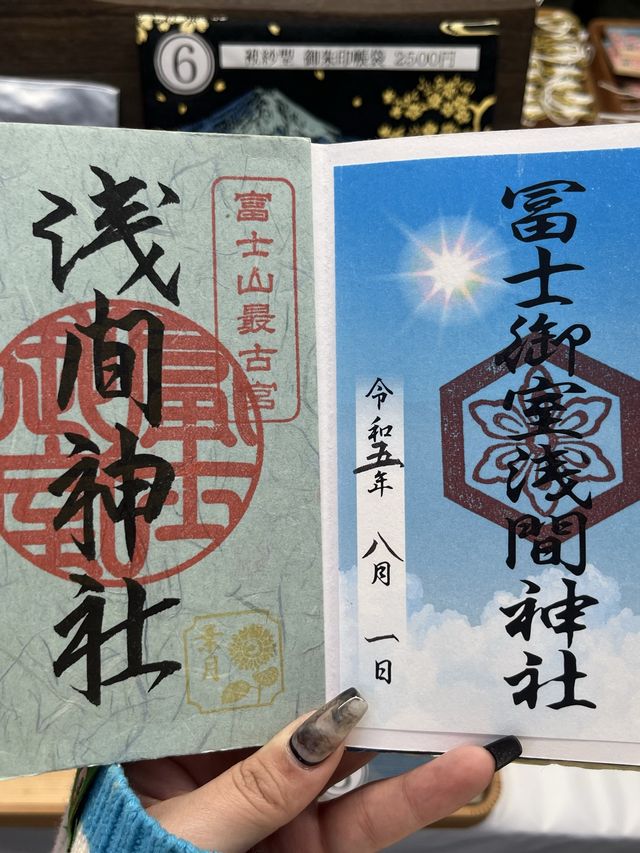 6
袱紗型 御朱印帳袋 2500円
冨士御室浅間神社
令和五年 八月 一日
富士山最古宮
浅間神社
葉月